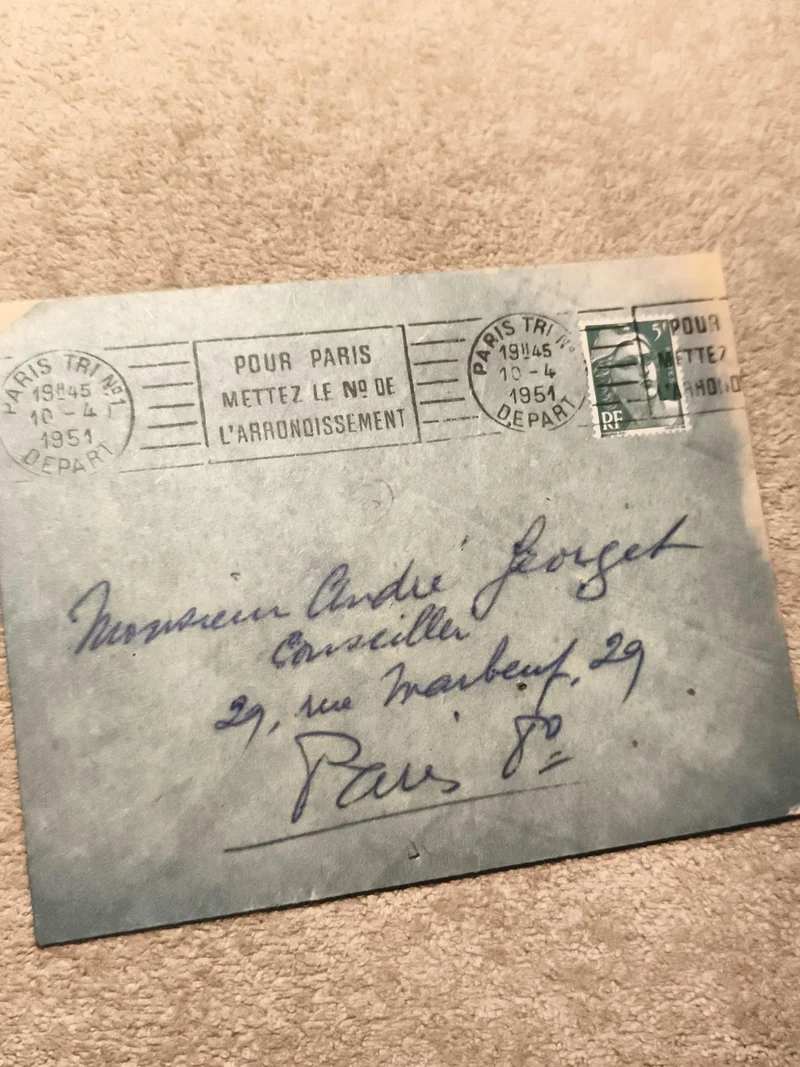 PARIS TRI Nº1
19H45
10 - 4
1951
DEPART
POUR PARIS
METTEZ LE Nº DE
L'ARRONDISSEMENT
PARIS TRI Nº
19H45
10 - 4
1951
DEPART
5
RF
POUR
METTEZ
L'ARROND
Monsieur André Georget
Conseiller
29, rue Marbeuf, 29
Paris 8º